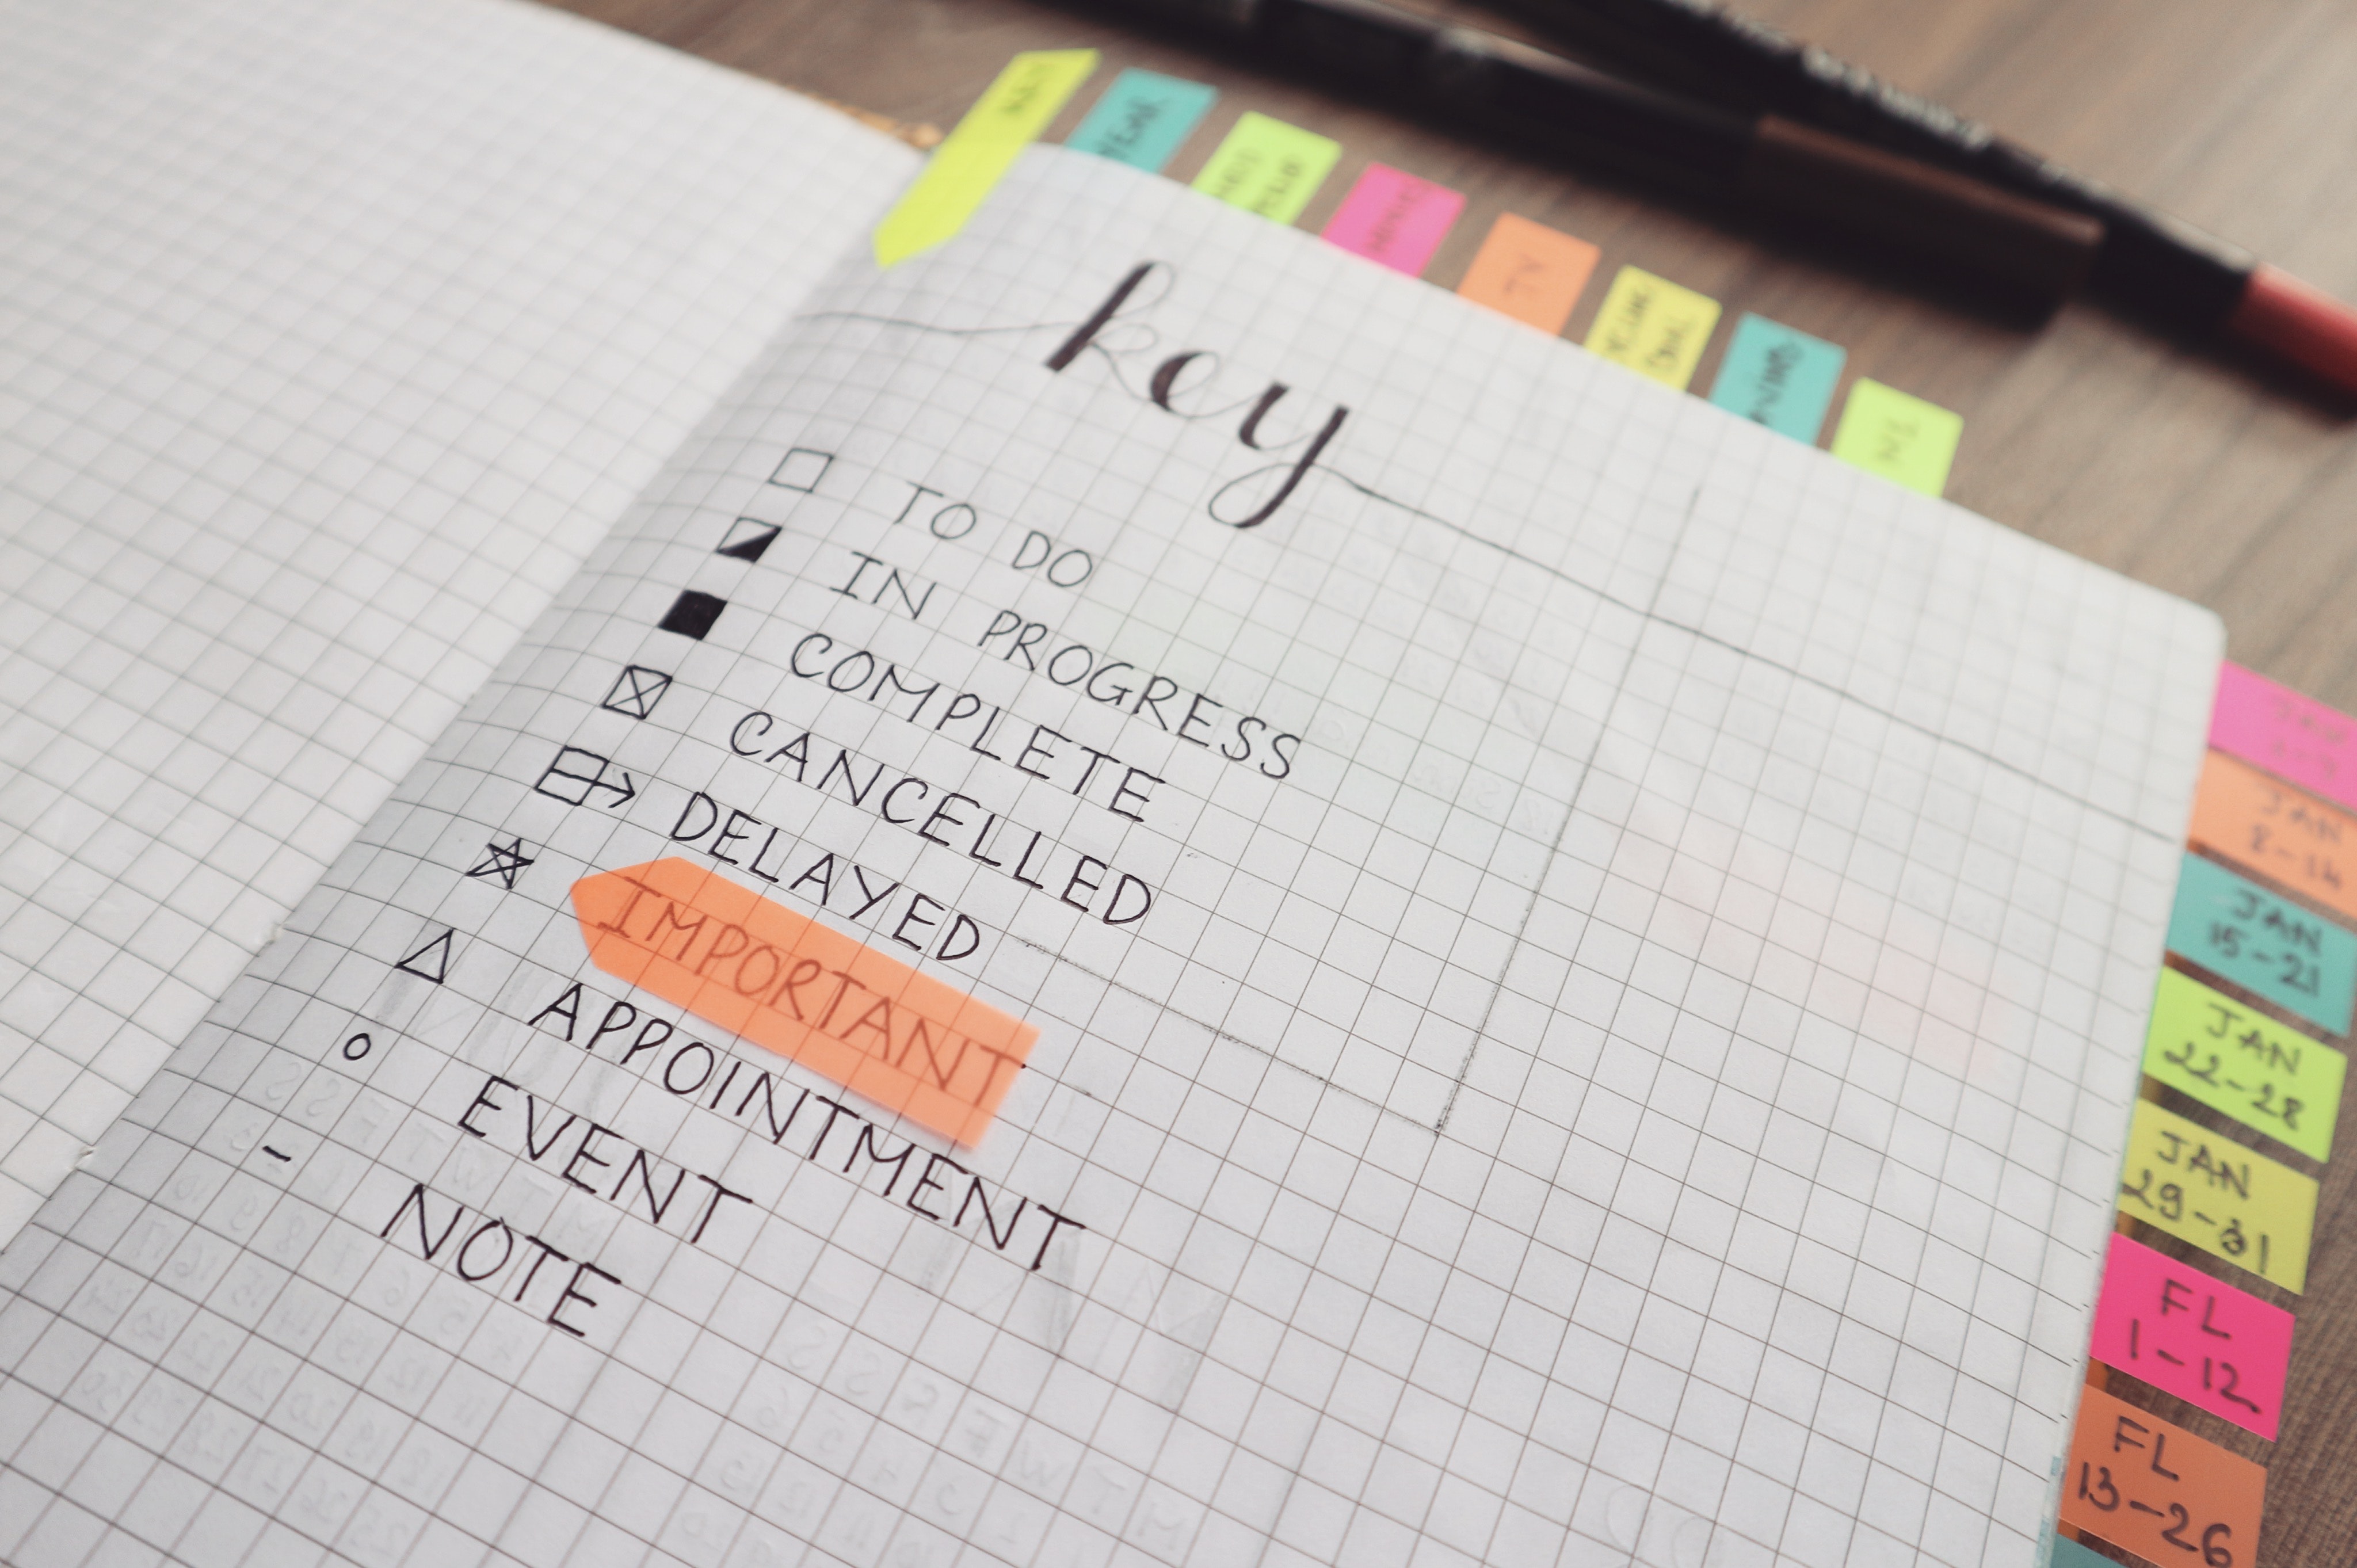 YEAR
TV
key
TO DO
IN PROGRESS
COMPLETE
CANCELLED
DELAYED
IMPORTANT
APPOINTMENT
EVENT
NOTE
JAN
8-14
JAN
15-21
JAN
22-28
JAN
29-31
FL
1-12
FL
13-26